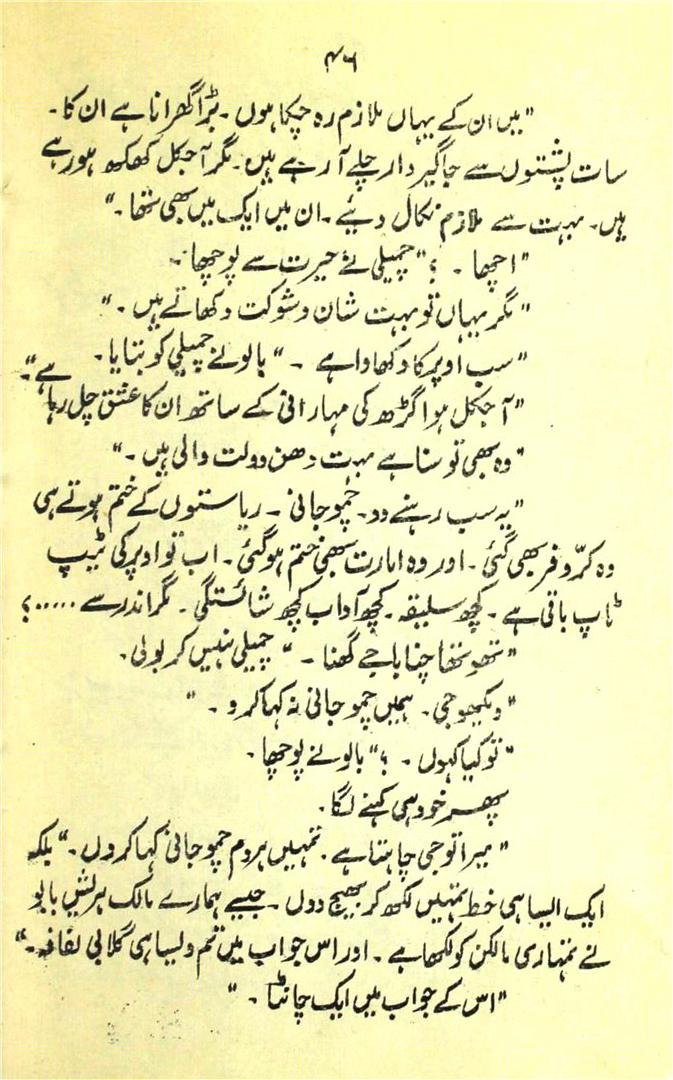 ۴۶
"میں ان کے یہاں ملازم رہ چکا ہوں ۔ بڑا گھرانا ہے ان کا ۔
سات پشتوں سے جاگیردار چلے آ رہے ہیں۔ مگر آجکل کھکھ ہو رہے
ہیں۔ بہت سے ملازم نکال دیئے ۔ ان میں ایک میں بھی تھا ۔"
"اچھا ۔ ؟" چمپلی نے حیرت سے پوچھا ۔
"مگر یہاں تو بہت شان و شوکت دکھاتے ہیں ۔"
"سب اوپر کا دکھاوا ہے ۔" بالو نے چمپلی کو بتایا ۔
"آجکل ہوا گڑھ کی مہارانی کے ساتھ ان کا عشق چل رہا ہے۔"
"وہ بھی تو سنا ہے بہت دھن دولت والی ہیں ۔"
"یہ سب رہنے دو۔ چمّو جانی ۔ ریاستوں کے ختم ہوتے ہی
وہ کرّ و فر بھی گئی ۔ اور وہ امارت بھی ختم ہو گئی ۔ اب تو اوپر کی ٹیپ
ٹاپ باقی ہے ۔ کچھ سلیقہ ۔ کچھ آداب کچھ شائستگی ۔ مگر اندر سے .....؟
"تھوتھا چنا باجے گھنا ۔" چمپلی ہنس کر بولی ۔
"دیکھو جی ۔ ہمیں چمو جانی نہ کہا کرو ۔"
"تو کیا کہوں ۔ ؟" بالو نے پوچھا ۔
پھر خود ہی کہنے لگا ۔
"میرا تو جی چاہتا ہے ۔ تمہیں ہردم چمو جانی کہا کروں ۔" بلکہ
ایک ایسا ہی خط تمہیں لکھ کر بھیج دوں ۔ جیسے ہمارے مالک ہریش بابو
نے تمہاری مالکن کو لکھا ہے ۔ اور اس جواب میں تم ویسا ہی گلابی لفافہ ۔"
"اس کے جواب میں ایک چانٹا ۔"